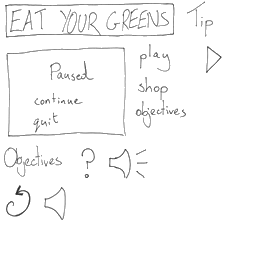 EAT YOUR GREENS
Tip
Paused
continue
quit
play
shop
objectives
Objectives ?